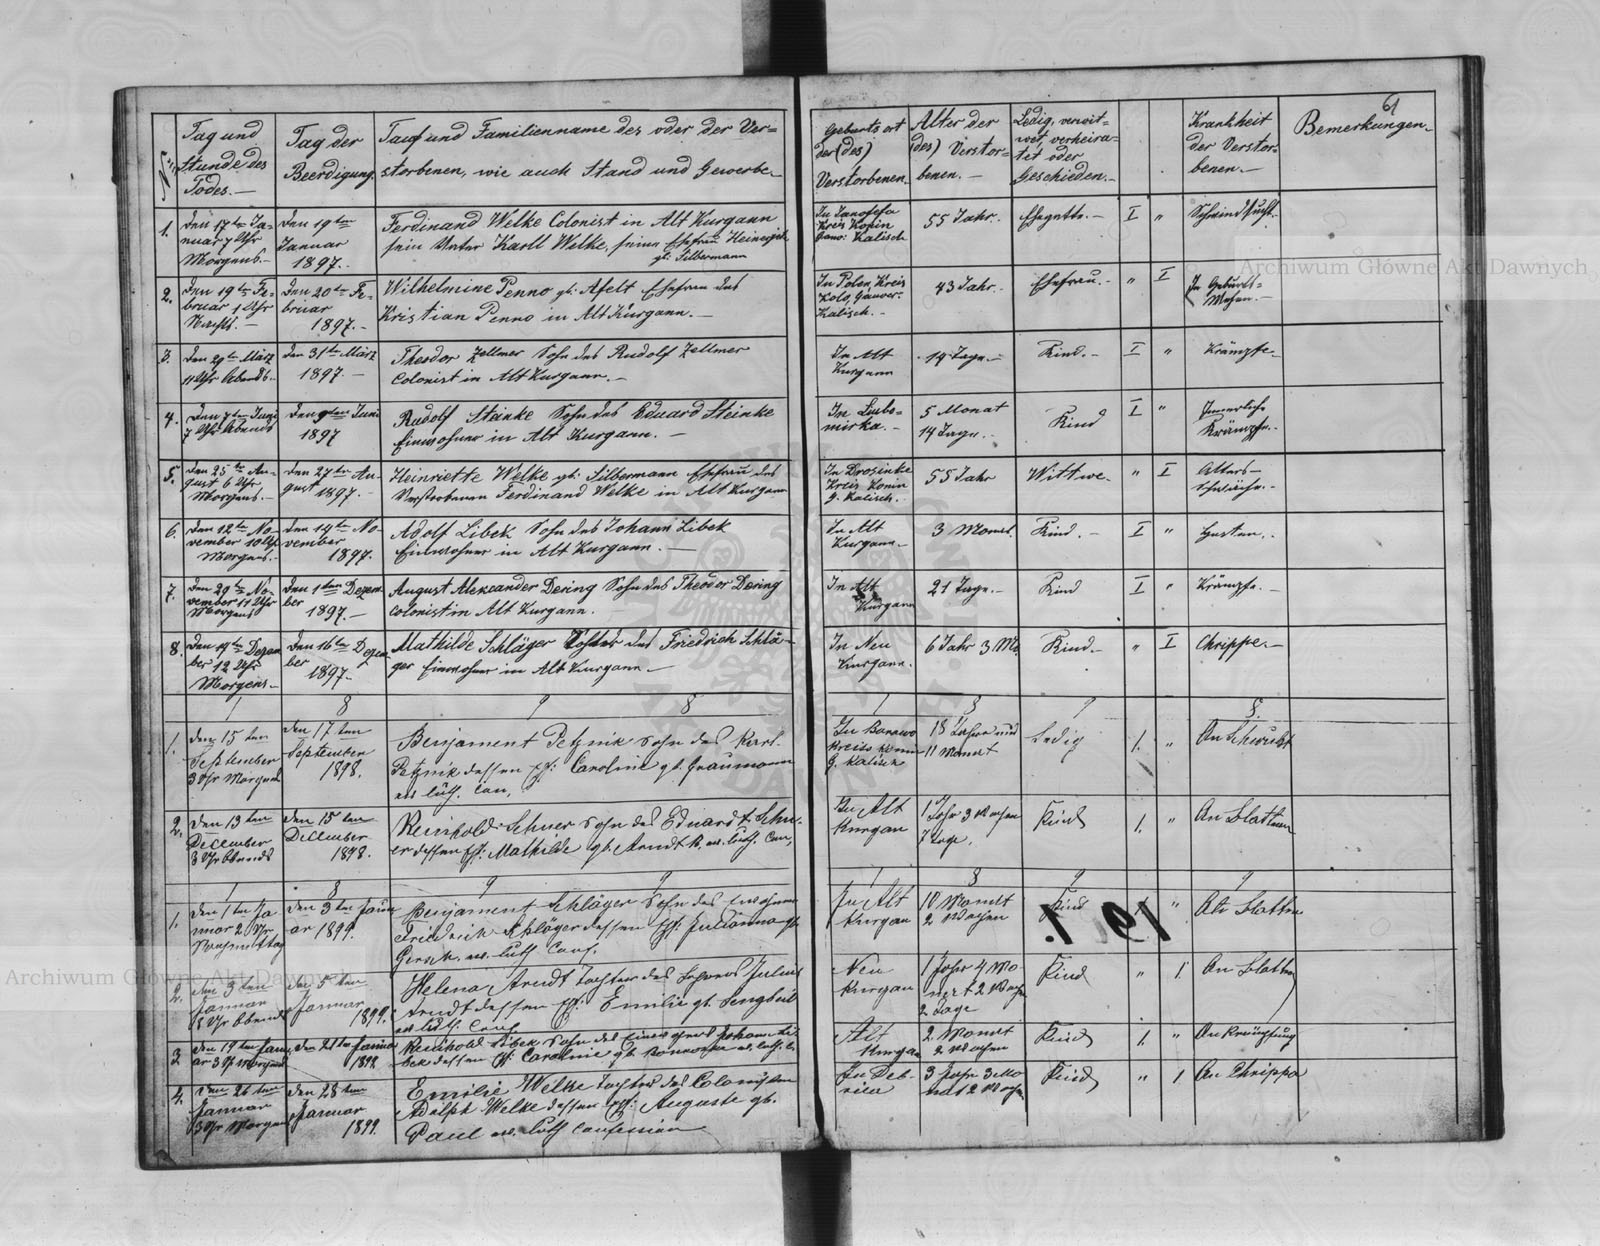 61
No
Tag und Stunde des Todes.—
Tag der Beerdigung.
Tauf und Familienname des oder der Ver=
storbenen, wie auch Stand und Gewerbe.
Geburtsort der (des) Verstorbenen.
Alter der (des) Verstor=
benen.—
Ledig, verwit=
wet, verheira=
tet oder
Geschieden.—
Krankheit
der Verstor=
benen.—
Bemerkungen.
1.
Den 17ten Ja=
nuar 7 Uhr
Morgens.—
Den 19ten
Januar
1897.
Ferdinand Welke Colonist in Alt Kurgann
sein Vater Karll Welke, seine Ehefrau
gb. Silbermann
Kreis Konin
Gouv: Kalisch
55 Jahr.
Ehegatte.—
I
"
Schwindsucht.
2.
Den 19te Fe=
bruar 1 Uhr
Nachts.—
Den 20te Fe=
bruar
1897.—
Wilhelmine Penno gb. Afelt Ehefrau des
Kristian Penno in Alt Kurgann.—
In Polen, Kreis
Kolo, Gouver:
Kalisch.—
43 Jahr.—
Ehefrau.—
"
I
In Geburts=
Wehen.—
3.
Den 29te März
11 Uhr Abends.
Den 31te März
1897.—
Theodor Zellmer Sohn des Rudolf Zellmer
Colonist in Alt Kurgann.—
In Alt
Kurgann
14 Tage.—
Kind.—
I
"
Krämpfe.
4.
Den 7ten Juni
7 Uhr Abends
Den 9ten Juni
1897
Rudolf Steinke Sohn des Eduard Steinke
Einwohner in Alt Kurgann.—
In Lubo=
mirka.—
5 Monat
14 Tage.—
Kind
I
"
Innerliche
Krämpfe.
5.
Den 25te Au=
gust 6 Uhr
Morgens.—
Den 27te Au=
gust 1897.—
Heinriette Welke gb. Silbermann Ehefrau des
Verstorbenen Ferdinand Welke in Alt Kurgann
Kreis Konin
G. Kalisch.
55 Jahr
Wittwe.
"
I
Alters=
schwäche.—
6.
Den 12te No=
vember 10 Uhr
Morgens.
Den 14te No=
vember
1897.
Adolf Libek Sohn des Johann Libek
Einwohner in Alt Kurgann.—
In Alt
Kurgann.
3 Monat.
Kind.—
I
"
Husten.
7.
Den 29te No=
vember 11 Uhr
Morgens
Den 1ten Dezem
ber
1897.—
August Aleksander Dering Sohn des Theodor Dering
Colonist in Alt Kurgann.—
In Alt
Kurgann
21 Tage.—
Kind
I
"
Krämpfe.—
8.
Den 14te Dezem
ber 12 Uhr
Morgens.—
Den 16te Dezem
ber
1897.
Mathilde Schläger Tochter des Friedrich Schlä=
ger Einwohner in Alt Kurgann.—
In Neu
Kurgann.
6 Jahr 3 Mo.
Kind.
"
I
Chrippe.—
1 8 9 8
1 8 9 8.
1.
Den 15ten
September
3 Uhr Morgens
Den 17ten
September
1898.
Benjament Petznik Sohn des Karl
Petznik dessen Ef: Caroline gb. Graumann
ev. luth. Con.
Kreis Konin
G. Kalisch
18 Jahr und
11 Monat
Ledig
1.
"
An Schwulst
2.
Den 13ten
December
8 Uhr Abends
Den 15ten
December
1898.
Reinhold Schuer Sohn des Eduardt Schu=
er dessen Ef: Mathilde gb. Arndt ev. luth. Con.
In Alt
Kurgan
1 Jahr 3 Wochen
7 Tage.
Kind
1.
"
An Blattern
1 8 9 9
1 8 9 9
1.
Den 1ten Ja
nuar 2 Uhr
Nachmittag
Den 3ten Janu
ar 1899.
Benjament Schläger Sohn des Einwohner
Friedrich Schläger dessen Ef: Julianna gb.
ev. luth Conf.
In Alt
Kurgan
10 Monat
2 Wochen
Kind
"
An Blattern
2.
Den 3ten
Januar
8 Uhr Abends
Den 5ten
Januar
1899.
Helena Arndt Tochter des Julius
Arndt dessen Ef: Emilie gb. Sengbeil
ev. luth. Conf
Neu
Kurgan
1 Jahr 4 Mo=
nat 2 Wochen
2 Tage
Kind
"
1
An Blattern
3
Den 19ten Janu
ar 3 Uhr Morgens
Den 21ten Januar
1899.
Reinhold Libek Sohn des Einwohner Johann Li=
bek dessen Ef: Caroline gb. ev. luth. C.
Alt
Kurgan
2 Monat
2 Wochen
Kind
1.
"
An Krämpfung
4.
Den 26ten
Januar
3 Uhr Morgens
Den 28ten
Januar
1899.
Emilie Welke Tochter des Colonisten
Adolph Welke dessen Ef: Auguste gb.
Paul ev. luth Confession
3 Jahr 3 Mo
nat 2 Wochen
Kind
"
1
An Chrippe
Archiwum Główne Akt Dawnych
Archiwum Główne Akt Dawnych